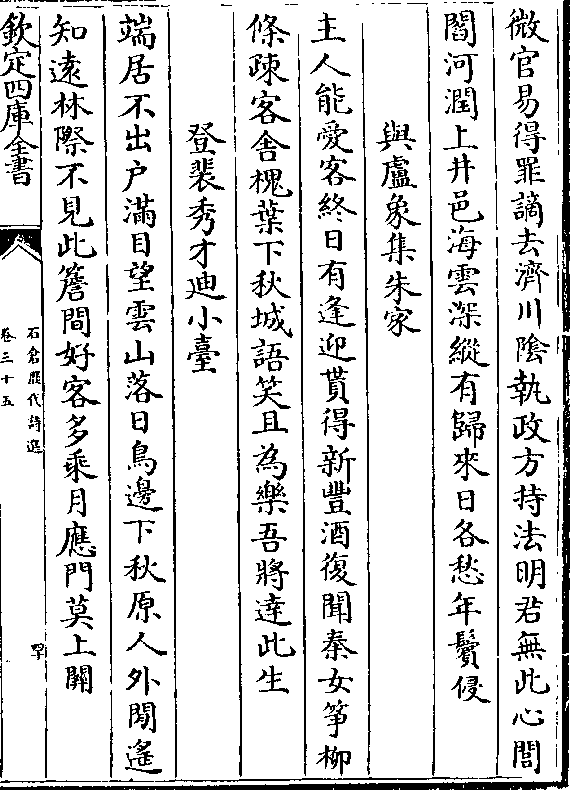 微官易得罪謫去濟川隂執政方持法明君無此心閭
閻河潤上井邑海雲深縱有歸來日各愁年鬢侵
與盧象集朱家
主人能愛客終日有逢迎貰得新豐酒復聞秦女筝柳
條疎客舍槐葉下秋城語笑且為樂吾將達此生
登裴秀才迪小臺
端居不出户滿目望雲山落日鳥邊下秋原人外閒遙
知遠林際不見此簷間好客多乘月應門莫上關
欽定四庫全書
石倉歷代詩選
卷三十五